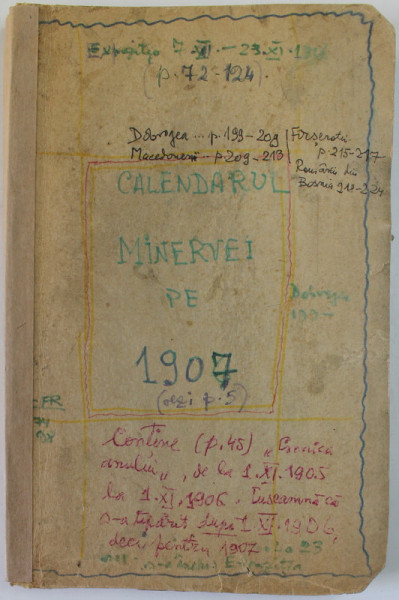 Expoziția 7.VI.–23.XI.190
(p.72-124).
Dobrogea ... p.199-209
Macedoneni .. p.209-213
Fârșeroții
p.215-217
Românii din
Bosnia 218-224
CALENDARUL
MINERVEI
PE
1907
(vezi p.5)
Dobrogea
FR
Conține (p.45) „Cronica
anului„, de la 1.XI.1905
la 1.XI.1906. Înseamnă că
s-a tipărit după 1.XI.1906,
deci pentru 1907. La 23
s-a închis Expoziția